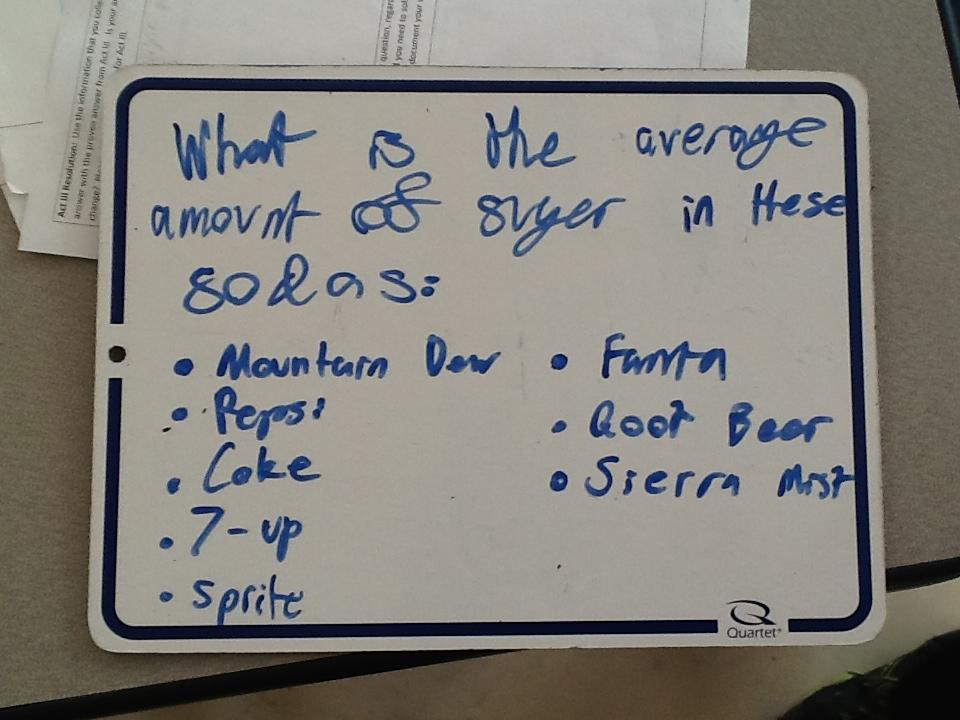 Act III Resolution: Use the information that you colle
answer with the proven answer from Act III. Is your a
change?
for Act III
question, regar
you need to sol
document your
What is the average
amount of suger in these
sodas:
• Mountain Dew
• Pepsi
• Coke
• 7-up
• Sprite
• Fanta
• Root Beer
• Sierra Mist
Quartet®